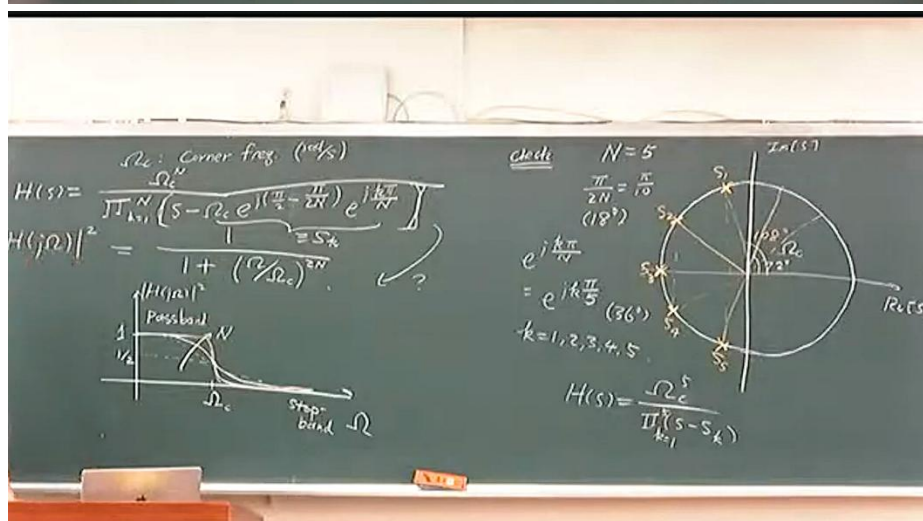 Ω_c : Corner freq. (rad/s)
H(s) = Ω_c^N / Π_{k=1}^N (s - Ω_c e^{j(π/2 - π/2N)} e^{j kπ/N})
≡ S_k
H(jΩ)|² = 1 / (1 + (Ω/Ω_c)^{2N}) .
?
|H(jΩ)|²
Passband
1
N
1/2
Ω_c
Stop-
band Ω
check N = 5
π/2N = π/10
(18°)
e^{j kπ/N}
= e^{jk π/5} (36°)
k = 1, 2, 3, 4, 5 .
H(s) = Ω_c^5 / Π_{k=1}^5 (s - S_k)
Im[s]
S_1
S_2
108°
Ω_c
72°
S_3
S_4
S_5
Re[s